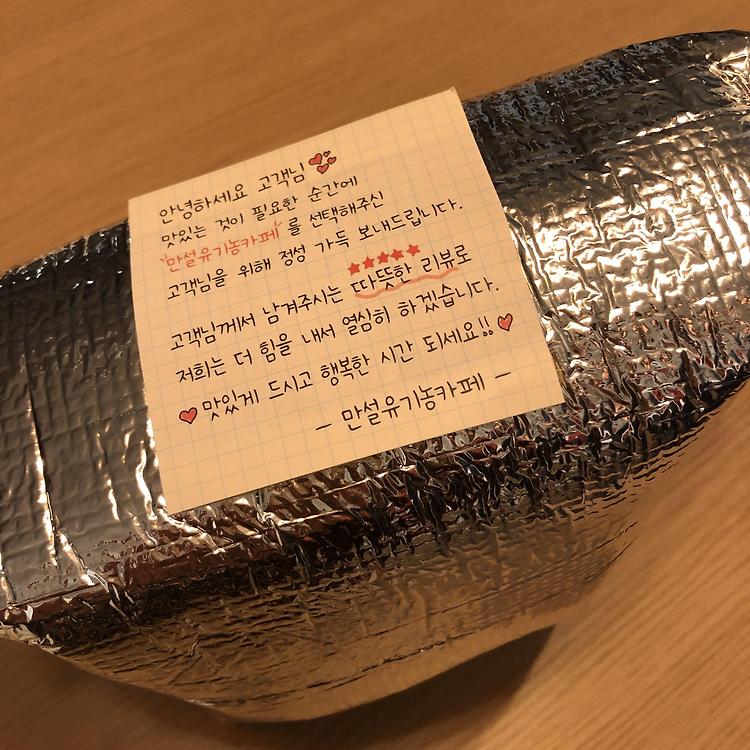 안녕하세요 고객님
맛있는 것이 필요한 순간에
'만설유기농카페'를 선택해주신
고객님을 위해 정성 가득 보내드립니다.
고객님께서 남겨주시는 따뜻한 리뷰로
저희는 더 힘을 내서 열심히 하겠습니다.
맛있게 드시고 행복한 시간 되세요!!
- 만설유기농카페 -